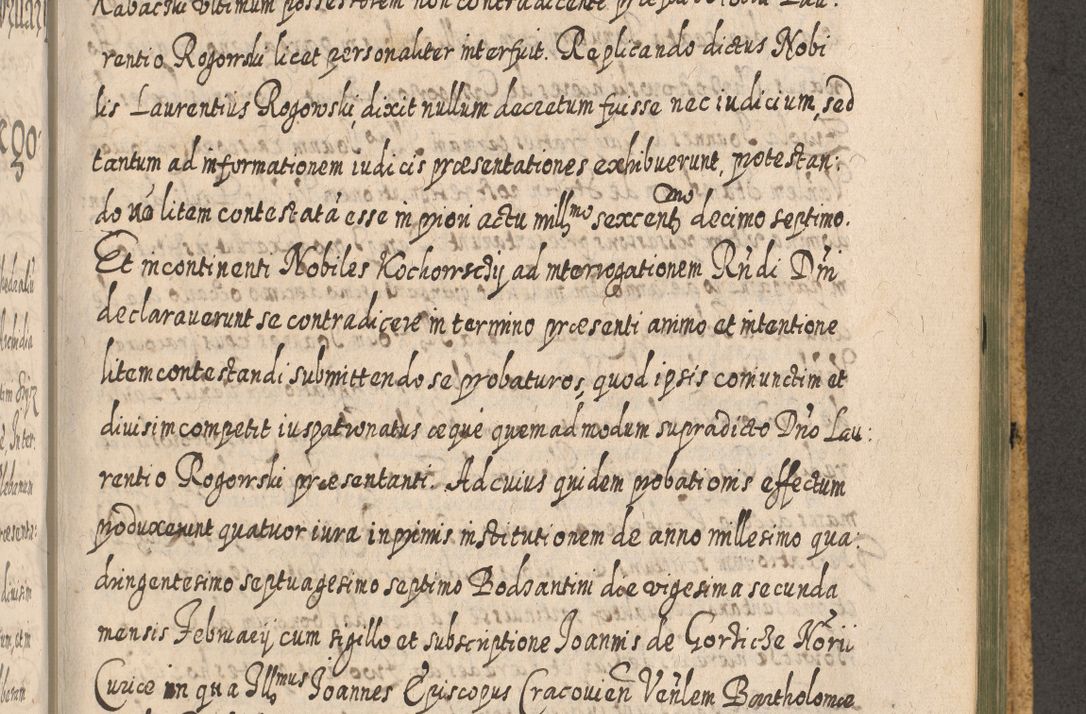 Kabacski vltimum possessorem non contradicente præfato Nobi Lau:
rentio Rogowski licet personaliter interfuit. Replicando dictus Nobi
lis Laurentius Rogowski, dixit nullum decretum fuisse nec iudicium, sed
tantum ad informationem iudicis præsentationes exhibuerunt, protestan:
do nō litem contestatā esse in priori actu millmo sexcentmo decimo septimo.
Et incontinenti Nobiles Kochowscÿ ad interrogationem Rñdi Dñi
declarauerunt se contradicere in termino præsenti animo et intentione
litem contestandi submittendo se probaturos, quod ipsis coniunctim et
diuisim competit iuspatronatus æque quemadmodum supradicto Dño Lau:
rentio Rogowski præsentanti. Ad cuius quidem probationis effectum
produxerunt quatuor iura inprimis institutionem de anno millesimo qua:
dringentesimo septuagesimo septimo Bodzantini die vigesima secunda
mensis Februarÿ cum sigillo et subscriptione Joannis de Gorticze Norii
Curiæ in qua Illmus Joannes Episcopus Cracouień Venlem Bartholomæ